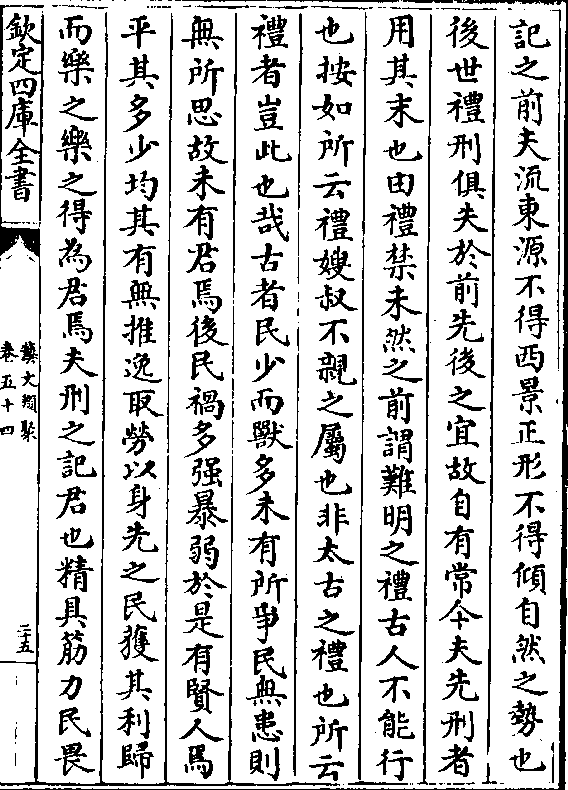 記之前夫流東源不得西景正形不得傾自然之勢也
後世禮刑俱失於前先後之宜故自有常今夫先刑者
用其末也由禮禁未然之前謂難明之禮古人不能行
也按如所云禮嫂叔不親之屬也非太古之禮也所云
禮者豈此也哉古者民少而獸多未有所爭民無患則
無所思故未有君焉後民禍多强暴弱於是有賢人焉
平其多少均其有無推逸取勞以身先之民獲其利歸
而樂之樂之得為君焉夫刑之記君也精具筋力民畏
欽定四庫全書
藝文類聚
卷五十四
二十五